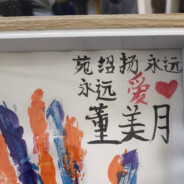 苑绍扬永远
永远爱
董美月